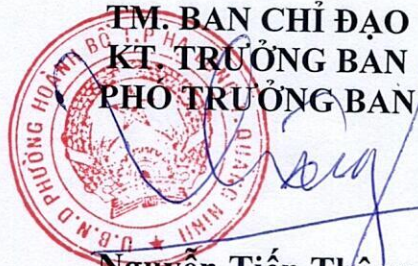 TM. BAN CHỈ ĐẠO
KT. TRƯỞNG BAN
PHÓ TRƯỞNG BAN
U.B.N.D PHƯỜNG HOÀNH BỒ T.P HẠ QUẢNG NINH
Nguyễn Tiến